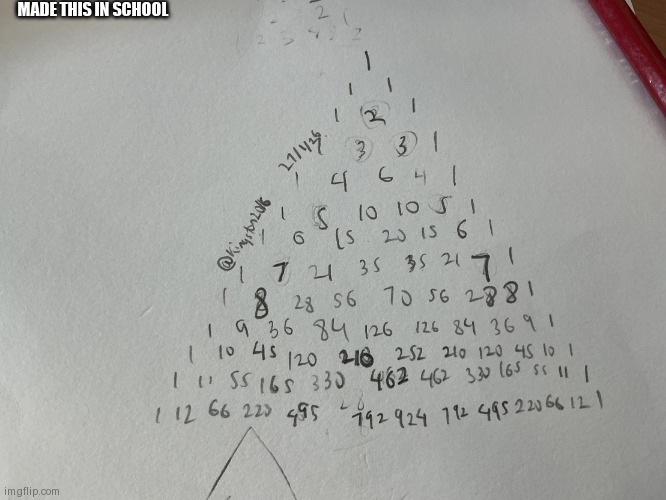 MADE THIS IN SCHOOL
1
1 1
1 2 1
27/4/26
3 3 1
1 4 6 4 1
@Kingston2016
1 5 10 10 5 1
1 6 15 20 15 6 1
1 7 21 35 35 21 7 1
1 8 28 56 70 56 28 8 1
1 9 36 84 126 126 84 36 9 1
1 10 45 120 210 252 210 120 45 10 1
1 11 55 165 330 462 462 330 165 55 11 1
1 12 66 220 495 792 924 792 495 220 66 12 1
imgflip.com